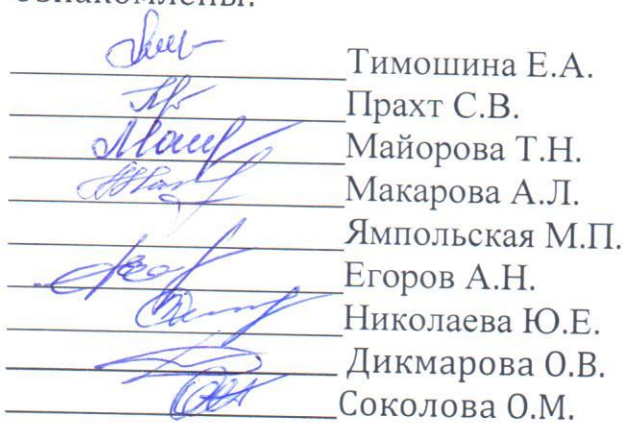 Ознакомлены:
Тимошина Е.А.
Прахт С.В.
Майорова Т.Н.
Макарова А.Л.
Ямпольская М.П.
Егоров А.Н.
Николаева Ю.Е.
Дикмарова О.В.
Соколова О.М.